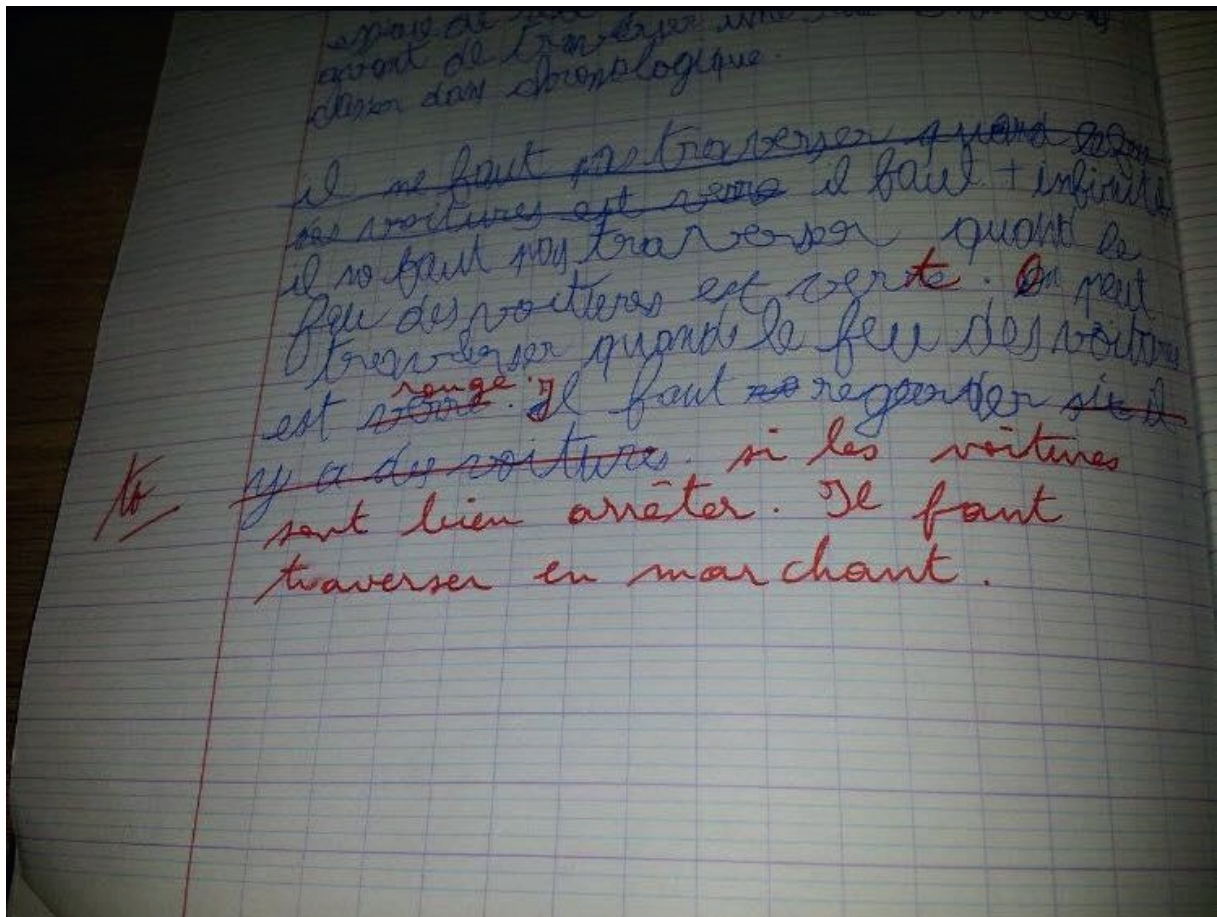 avant de traverser une
chronologique.
il ne faut pas traverser quand
des voitures est il faut + infinitif
il ne faut pas traverser quand le
feu des voitures est verte. On peut
traverser quand le feu des voitures
rouge.
est Il faut regarder si il
y a des voitures. si les voitures
to
sont bien arrêter. Il faut
traverser en marchant.